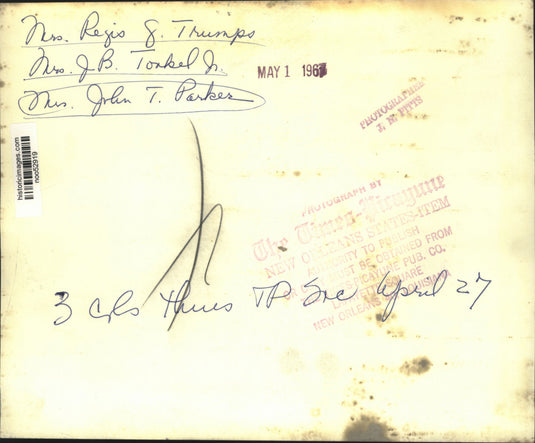 Mrs. Regis J. Trumps
Mrs. J.B. Tonkel Jr.
Mrs. John T. Parker
MAY 1 1967
PHOTOGRAPHER
J. M. PITTS
historicimages.com
noo52919
PHOTOGRAPH BY
The Times-Picayune
NEW ORLEANS STATES-ITEM
TO PUBLISH
MUST BE OBTAINED FROM
PUB. CO.
SQUARE
NEW ORLEANS LOUISIANA
3 cols Thurs TP Soc April 27